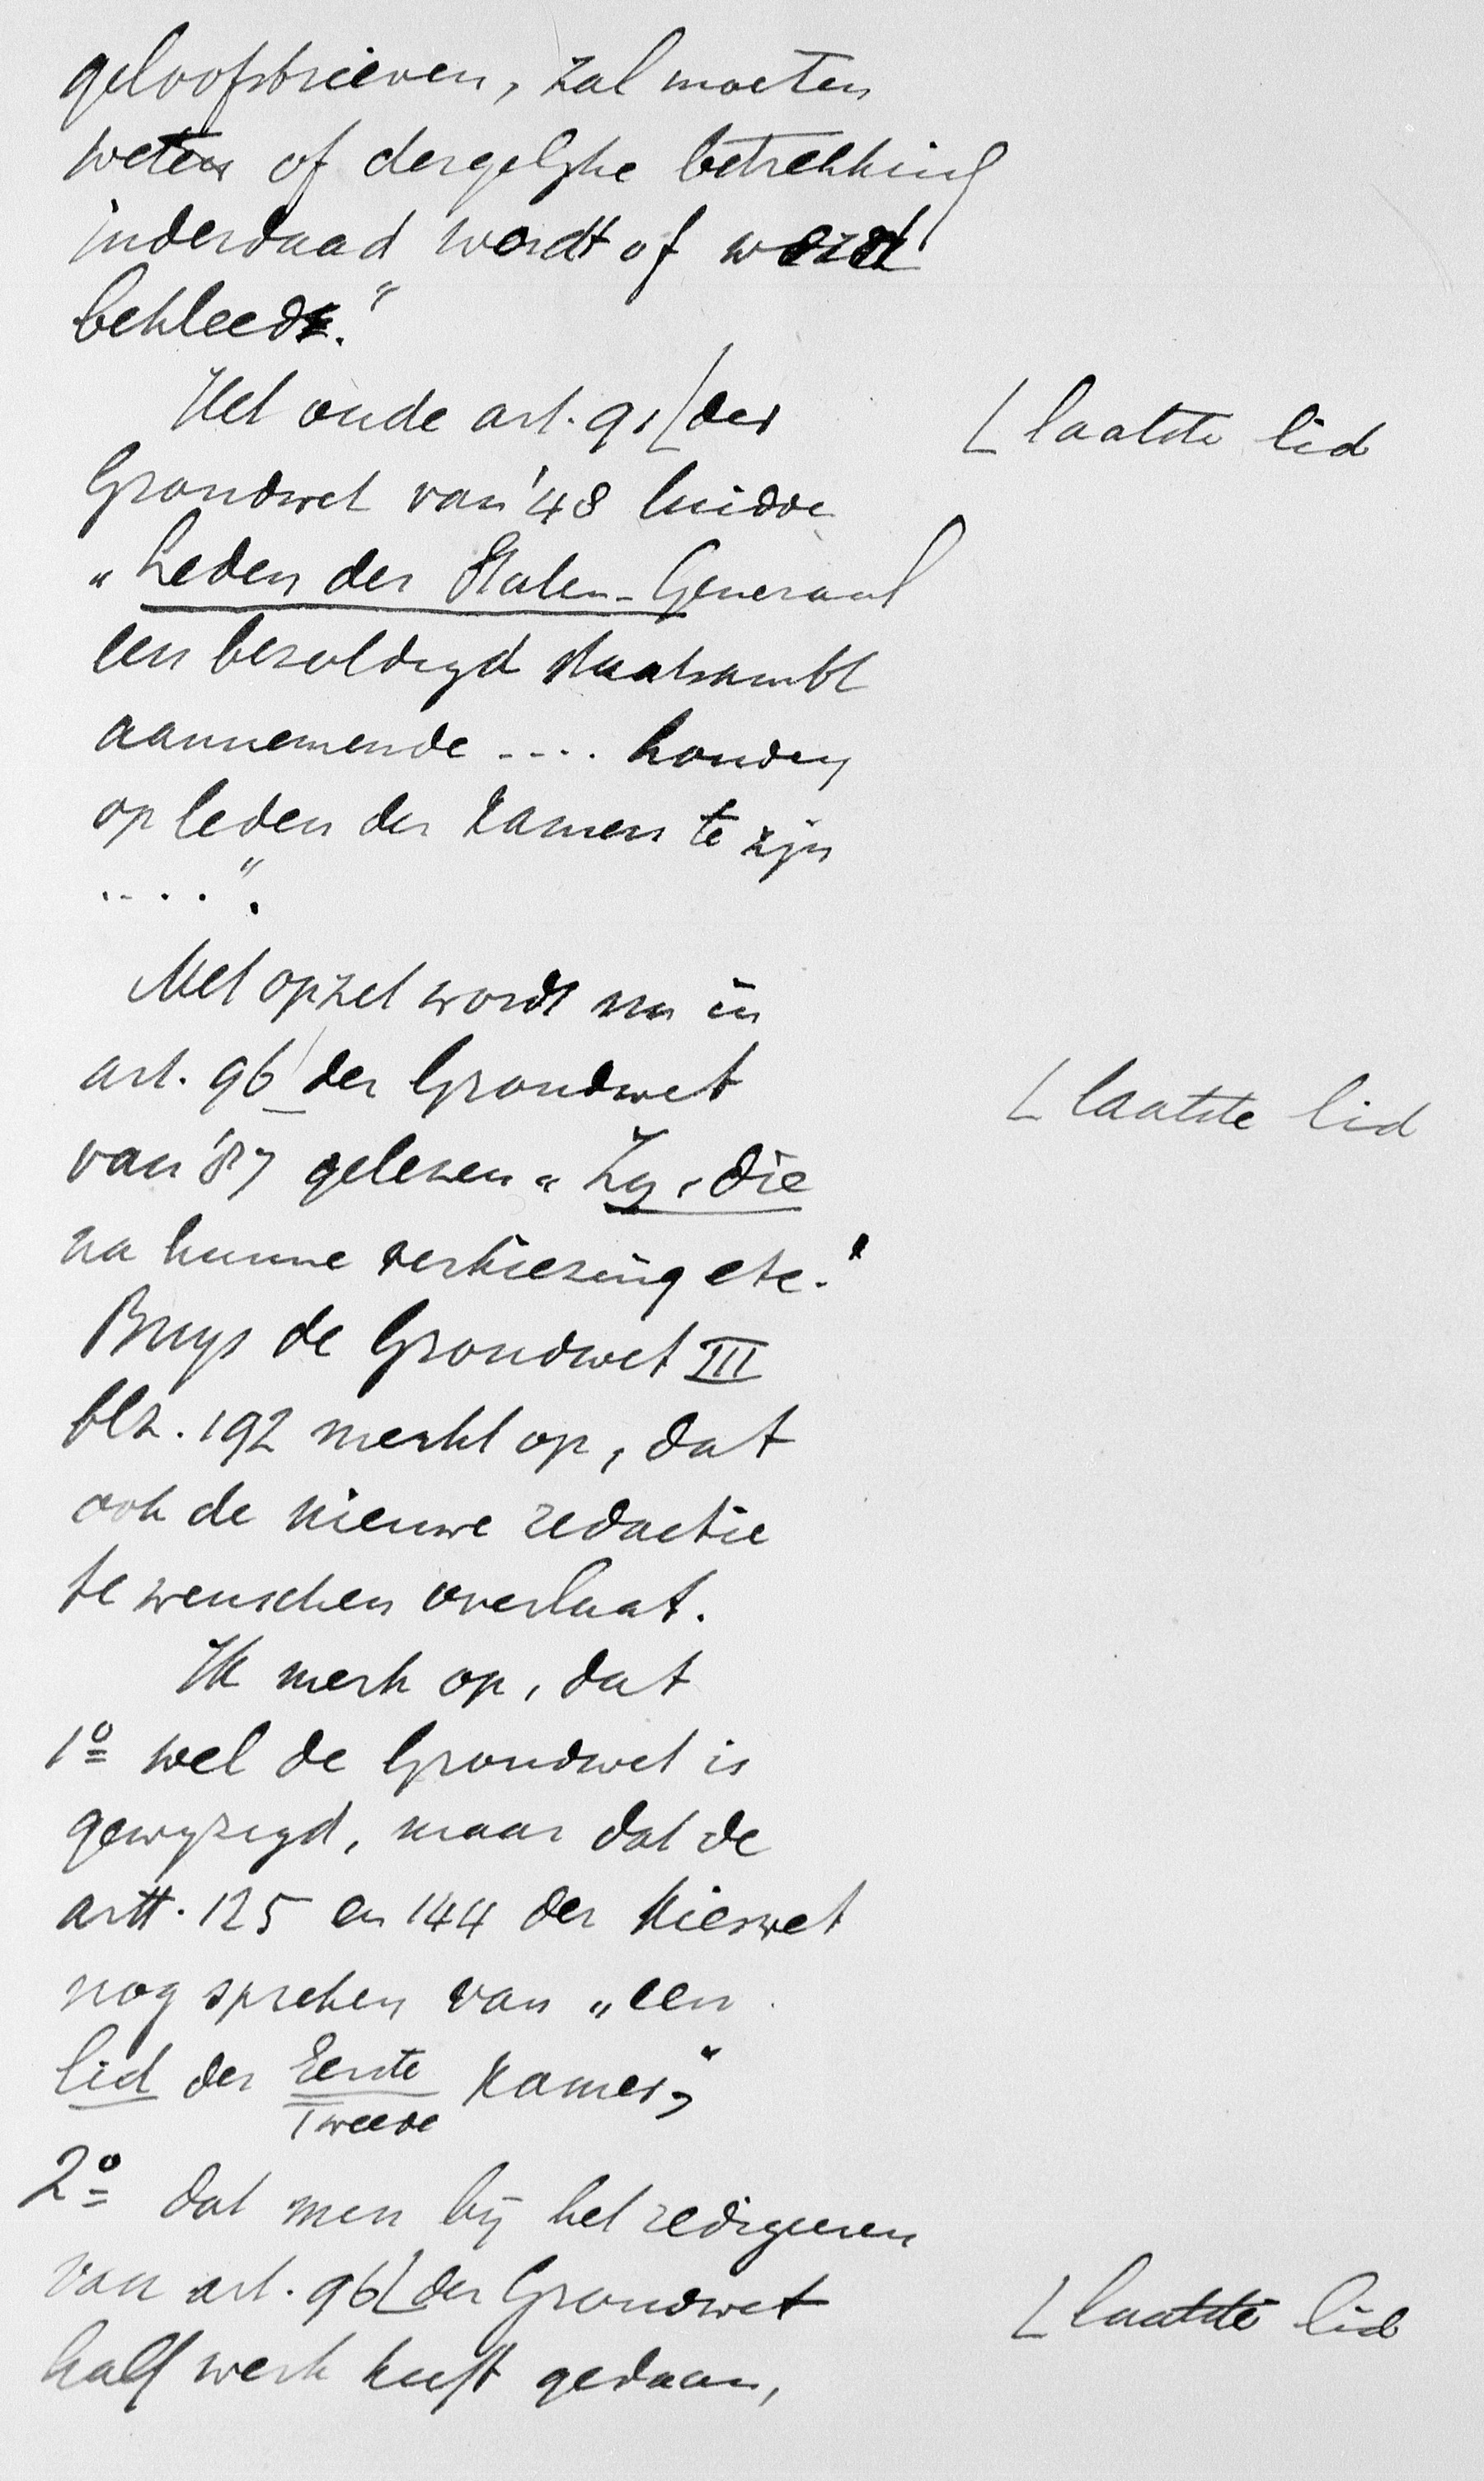 geloofsbrieven, zal moeten
weten of dergelyke betrekking
inderdaad wordt of werd
bekleed."
Het oude art. 91 [der
[ laatste lid
Grondwet van '48 luidde
„Leden der Staten-Generaal
een bezoldigd staatsambt
aannemende .... houden
op leden der Kamers te zijn
....".
Met opzet wordt nu in
art. 96 [der Grondwet
[ laatste lid
van '87 gelezen „Zy, die
na hunne verkiezing etc."
Buys de Grondwet III
blz. 192 merkt op, dat
ook de nieuwe redactie
te wenschen overlaat.
Ik merk op, dat
1º wel de Grondwet is
gewyzigd, maar dat de
artt. 125 en 144 der Kieswet
nog spreken van „een
lid der Eerste Kamer",
Tweede
2º dat men bij het redigeeren
van art. 96 [der Grondwet
[ laatste lid
half werk heeft gedaan,